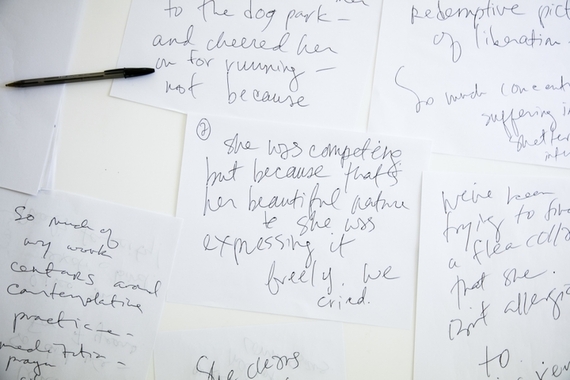 to the dog park –
and cheered her
on for running –
not because
redemptive pict
of liberation.
So much concent
suffering in
shelter
inte
② she was competing
but because that's
her beautiful nature
& she was
expressing it
freely. We
cried.
We've been
trying to find
a flea colla
that she
isn't allergic
to.
So much of
my work
centers around
contemplative
practice –
meditation –
praye
She